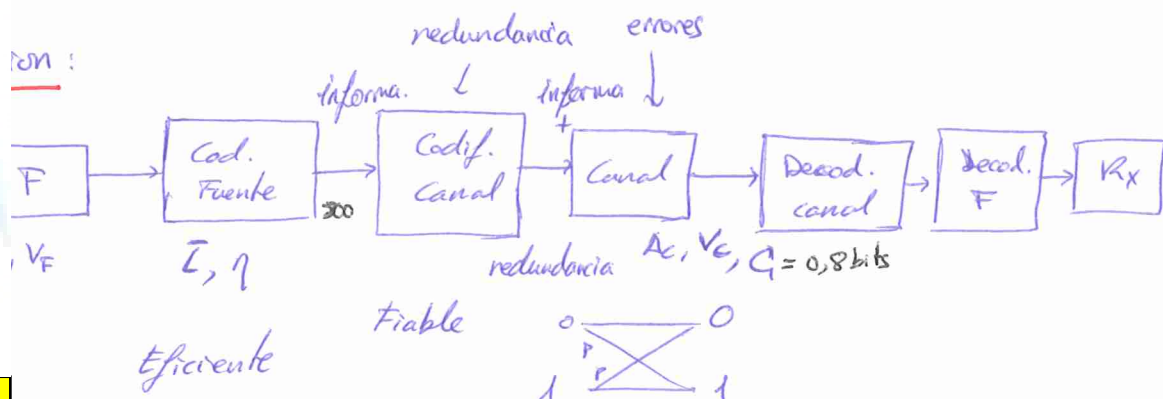 redundancia errores
ion :
informa. informa
+
F Cod. Fuente Codif. Canal Canal Decod. canal Decod. F Rx
300
, VF L, η redundancia Ac, Vc, C₁ = 0,8 bits
Fiable
0 0
P
P
Eficiente
1 1